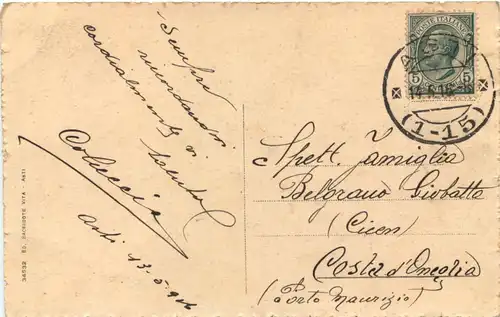 Sempre
ricordandovi
cordialmente vi
saluta
Coluccia
Asti 13-5-916
34532 ED. SACERDOTE VITA - ASTI
POSTE ITALIANE
5 5
(1-15)
Spett. Famiglia
Belgrano Giobatta
Costa d'Oneglia
(Porto Maurizio)